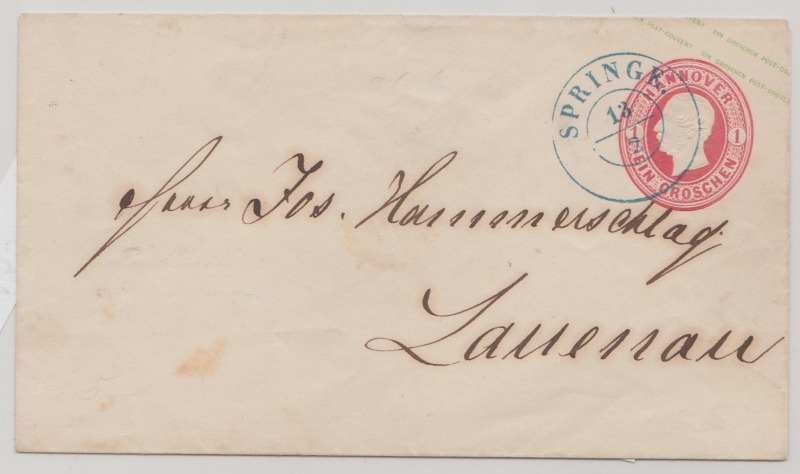 EIN GROSCHEN POST-COUVERT
EIN GROSCHEN POST-COUVERT
SPRINGE
13
2
HANNOVER
1 1
EIN GROSCHEN
Herrn Jos. Hammerschlag.
Lauenau